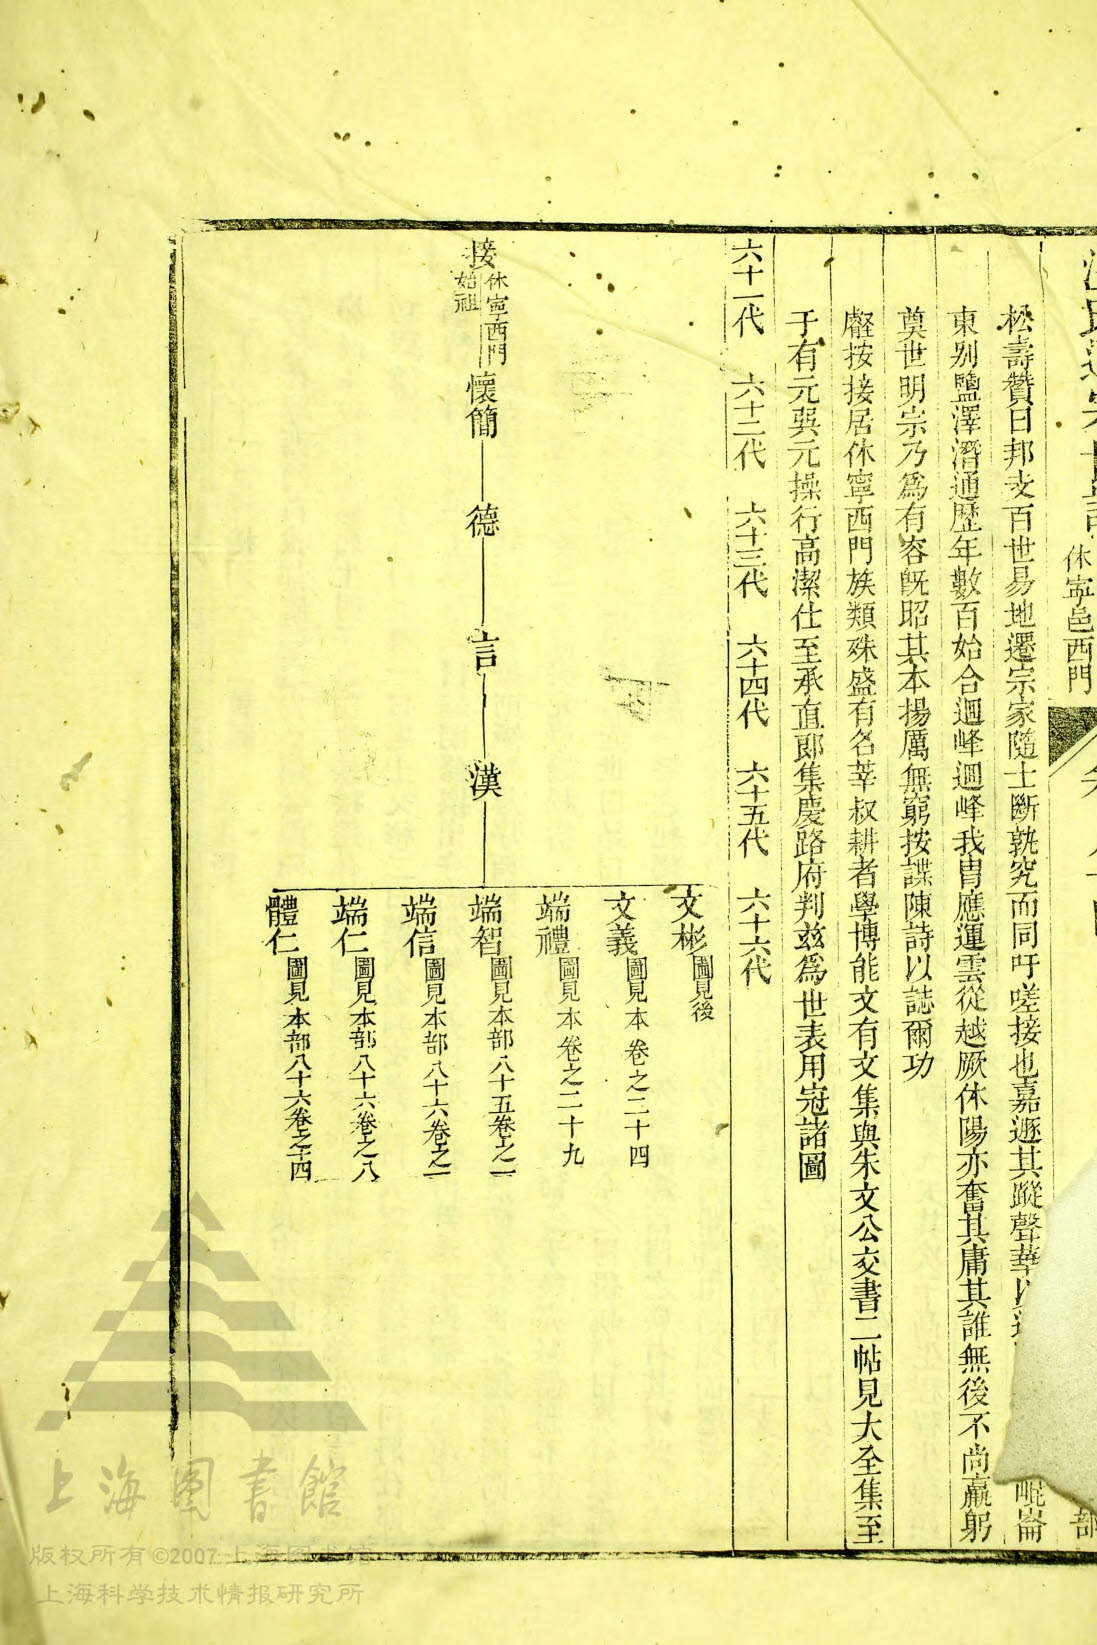 休寧邑西門
松壽贊曰邦支百世易地遷宗家隨士斷孰究而同吁嗟接也嘉遯其蹤聲華以
崐崙
東別鹽澤潛通歷年數百始合迴峰迴峰我胄應運雲從越厥休陽亦奮其庸其誰無後不尚羸躬
奠世明宗乃爲有容旣昭其本揚厲無窮按諜陳詩以誌爾功
礲按接居休寧西門族類殊盛有名莘叔耕者學博能文有文集與朱文公交書二帖見大全集至
于有元巽元操行高潔仕至承直郎集慶路府判兹爲世表用冠諸圖
六十一代 六十二代 六十三代 六十四代 六十五代 六十六代
接 休寧西門始祖 懷簡 德 言 漢
文彬 圖見後
文義 圖見本卷之二十四
端禮 圖見本卷之二十九
端智 圖見本部八十五卷之一
端信 圖見本部八十六卷之一
端仁 圖見本部八十六卷之八
體仁 圖見本部八十六卷之十四
上海图書館
版权所有©2007 上海图书馆
上海科学技术情报研究所